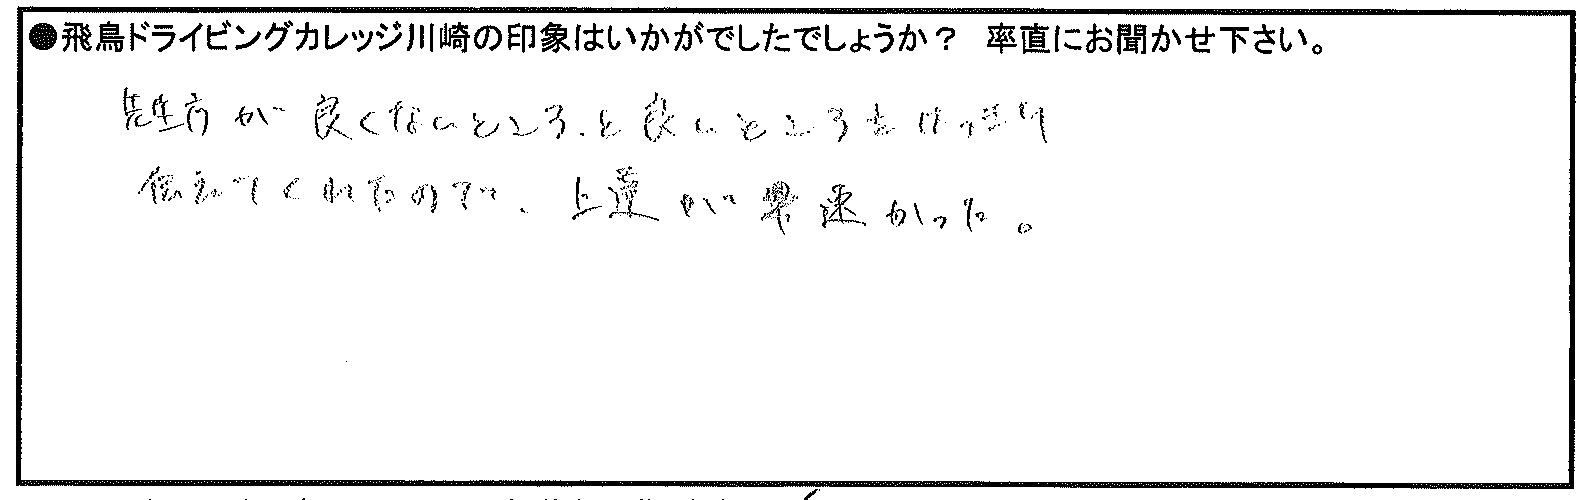 ●飛鳥ドライビングカレッジ川崎の印象はいかがでしたでしょうか？ 率直にお聞かせ下さい。
先生方が良くないところ、と良いところをはっきり
伝えてくれたので、上達が早速かった。